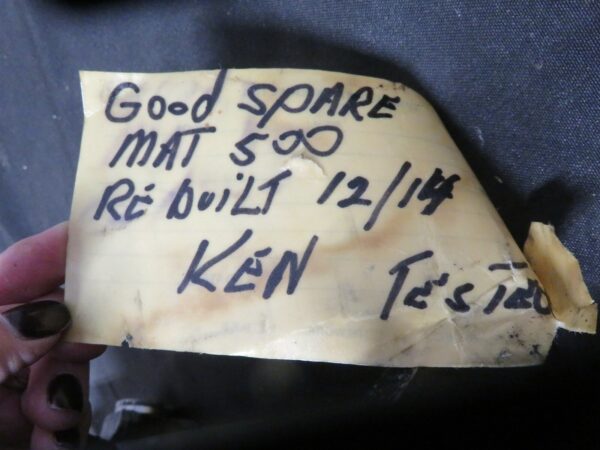 Good SPARE
MAT 500
REBUILT 12/14
KEN TESTED